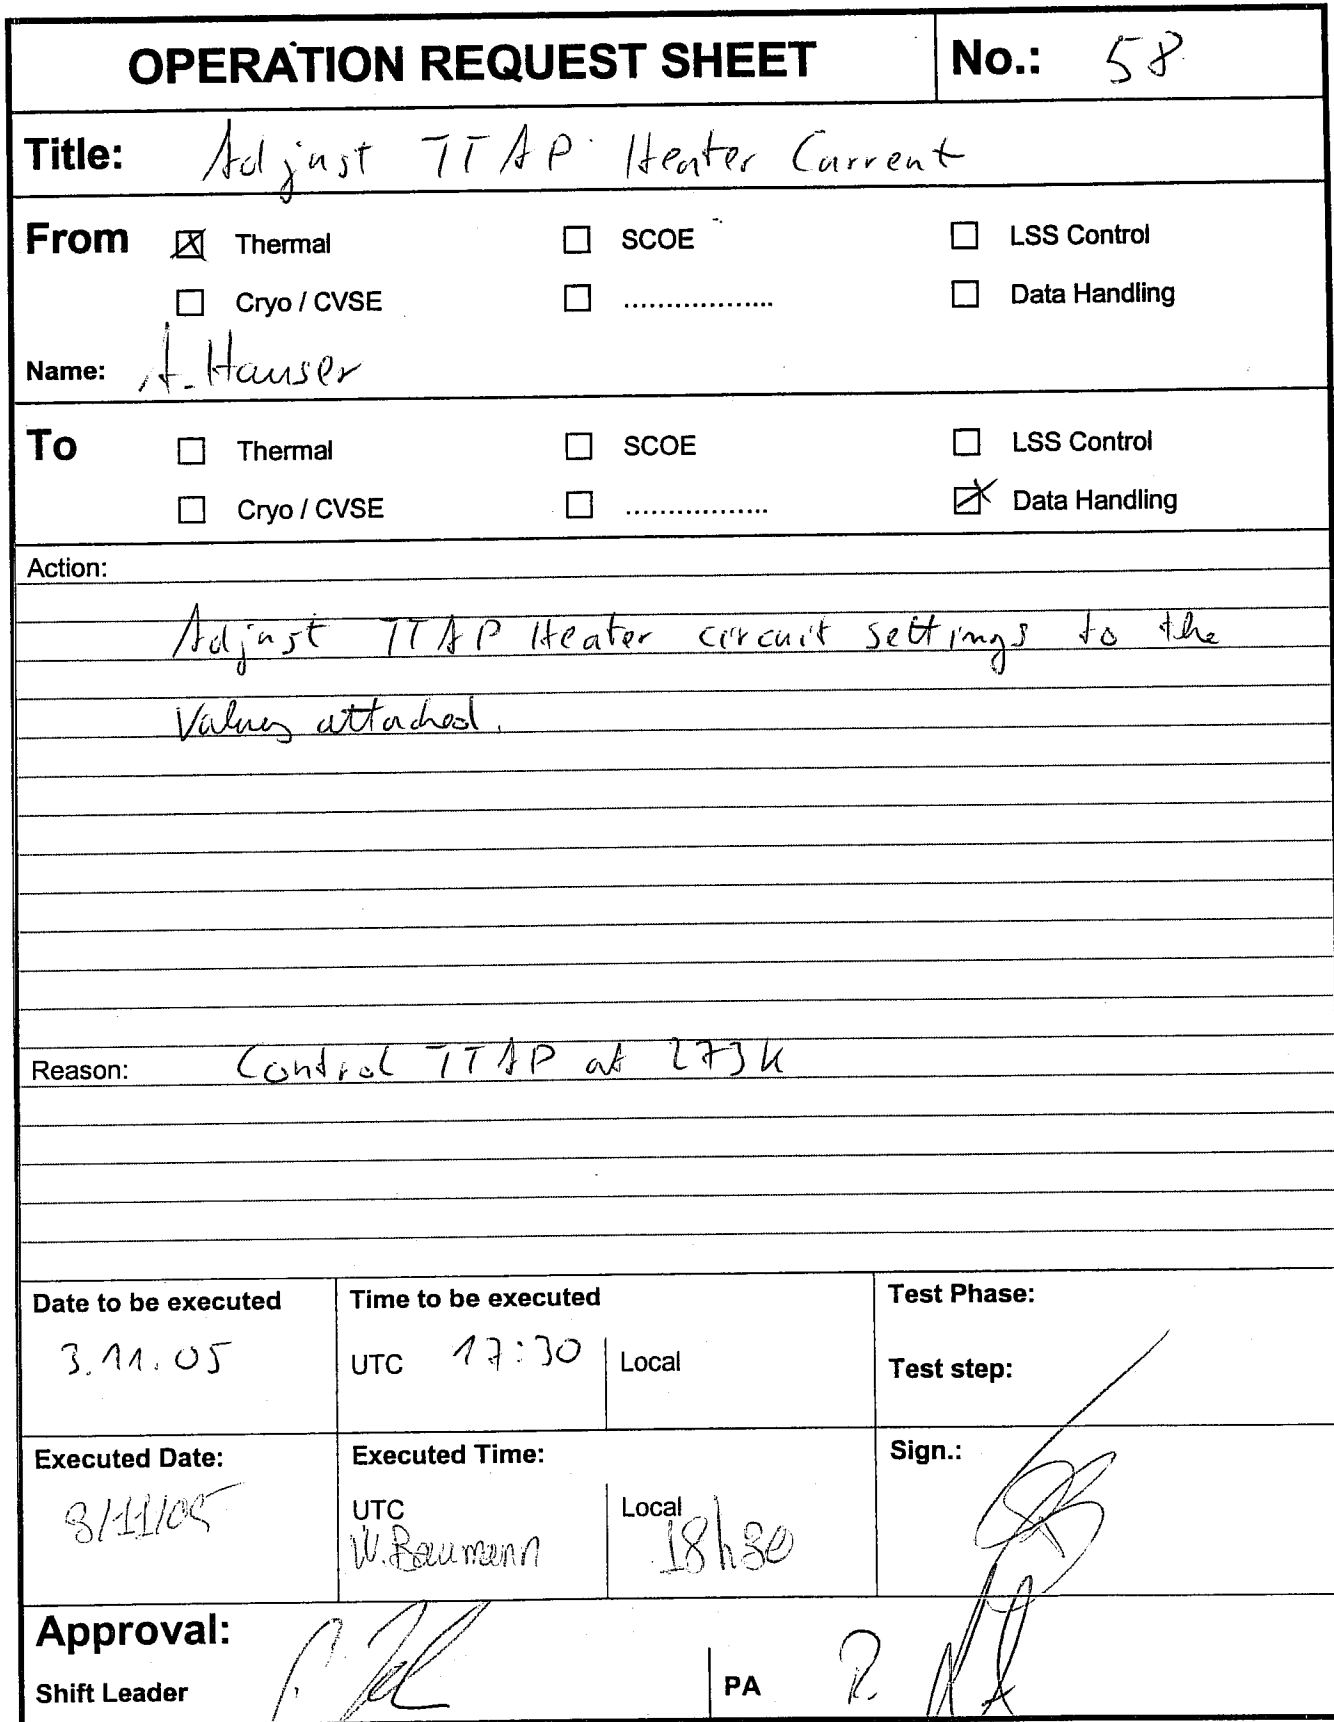 OPERATION REQUEST SHEET No.: 58
Title: Adjust TTAP Heater Current
From Thermal SCOE LSS Control
Cryo / CVSE .................. Data Handling
Name: A. Hauser
To Thermal SCOE LSS Control
Cryo / CVSE ................. Data Handling
Action:
Adjust TTAP Heater circuit settings to the
Values attached.
Reason: Control TTAP at 273K
Date to be executed Time to be executed Test Phase:
3.11.05 UTC 17:30 Local Test step:
Executed Date: Executed Time: Sign.:
UTC Local
W. Baumann 18h30
Approval:
Shift Leader PA R.